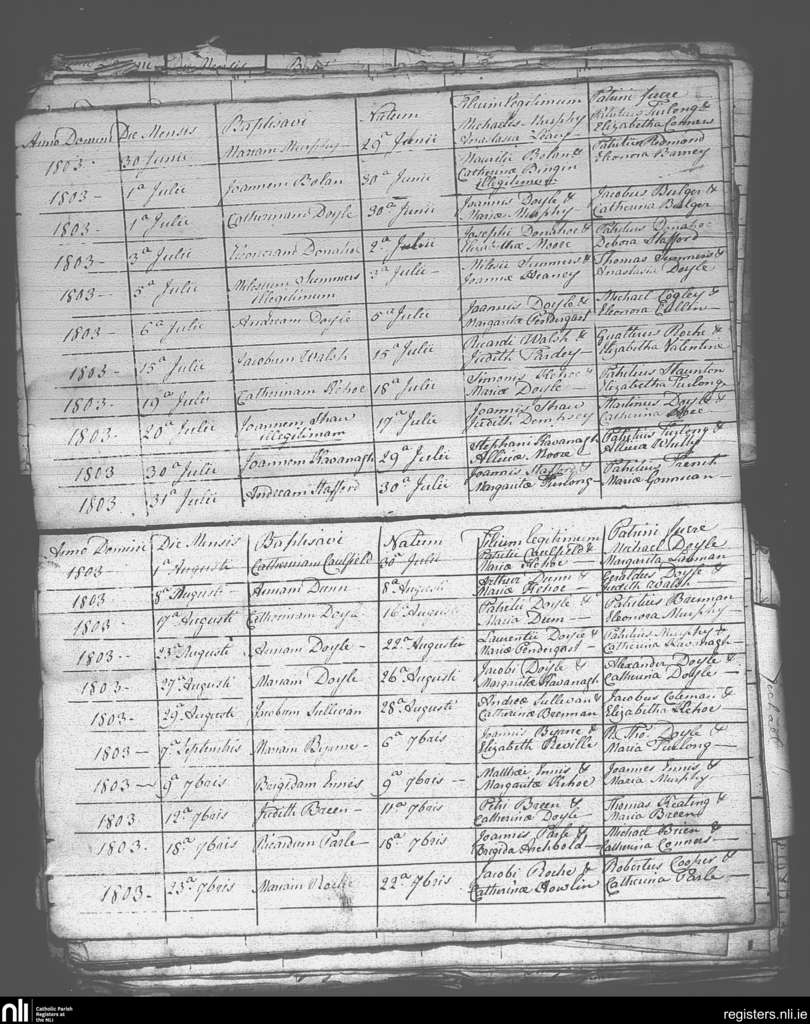 Die Mensis
Anno Domini Die Mensis Baptisavi Natum Filium legitimum Patrini fuere
1803 - 30 Junii Mariam Murphy - 29ª Junii Michaelis Murphy Elizabetha Connors
1803 - 1ª Julii Joannem Bolan 30ª Junii Mauritii Bolan & Patritius Redmond
illegitimum
1803 - 1ª Julii Catherinam Doyle 30ª Junii Joannis Doyle & Jacobus Bulger &
Mariæ Murphy Catherina Bulger
1803 - 3ª Julii Donahoe 2ª Julii Josephi Donahoe & Patritius Donahoe
Moore Debora Stafford
1803 - 5ª Julii Summers 3ª Julii - Summers & Thomas Summers &
illegitimum Anastasia Doyle
1803 - 6ª Julii Andream Doyle 5ª Julii Joannis Doyle & Michael Cogley &
Margaritæ Pendergast Eleonora
1803 - 15ª Julii Jacobum Walsh 15ª Julii Ricardi Walsh & Gualterus Roche &
Judith Elizabetha Valentine
1803 - 19ª Julii Catherinam Kehoe 18ª Julii Simonis Kehoe & Patritius Staunton
Mariæ Doyle - Elizabetha Furlong
1803 - 20ª Julii Joannem Shaw 17ª Julii Joannis Shaw Martinus Doyle &
illegitimum Judith Dempsey Catherina
1803 30ª Julii Joannem Kavanagh 29ª Julii Stephani Kavanagh Patritius Furlong &
Moore
1803 31ª Julii Andream Stafford 30ª Julii Joannis Stafford & Patritius French
Margaritæ Furlong - Maria
Anno Domini Die Mensis Baptisavi Natum Filium legitimum Patrini fuere
1803 - 1ª Augusti Catherinam Caulfield 30ª Julii Patritii Caulfield & Michael Doyle
Mariæ Kehoe - Margarita
1803 8ª Augusti - Annam Dunn 8ª Augusti Arthuri Dunn & Geraldus Doyle &
Mariæ Kehoe - Judith Walsh
1803 - 17ª Augusti Catherinam Doyle 16ª Augusti Patritii Doyle & Patritius Brennan
Maria Dunn - Eleonora Murphy -
1803 - 23ª Augusti Annam Doyle - 22ª Augusti Laurentii Doyle & Patritius Murphy &
Mariæ Pendergast - Catherina Kavanagh
1803 - 27ª Augusti Mariam Doyle 26ª Augusti Jacobi Doyle & Alexander Doyle &
Margaritæ Kavanagh Catherina Doyle -
1803 - 29ª Augusti Jacobum Sullivan 28ª Augusti Andreæ Sullivan & Jacobus Coleman &
Catherinæ Brennan Elizabetha Kehoe
1803 - 7ª Septembris Mariam Byrne - 6ª 7bris Joannis Byrne & Doyle &
Elizabeth Neville Maria Furlong -
1803 - 9ª 7bris Brigidam Ennis 9ª 7bris - Matthæi Ennis & Joannes Ennis &
Margaritæ Kehoe Maria Murphy
1803 12ª 7bris Judith Breen - 11ª 7bris Petri Breen & Thomas Keating &
Catherinæ Doyle - Maria Breen
1803 - 18ª 7bris Ricardum Parle - 18ª 7bris Joannis Parle & Michael Brien &
Brigida Archbold - Catherina Connors -
1803 - 23ª 7bris Mariam Roche 22ª 7bris Jacobi Roche & Robertus Cooper &
Catherinæ Howlin Catherina Parle -
nli Catholic Parish Registers at the NLI
registers.nli.ie